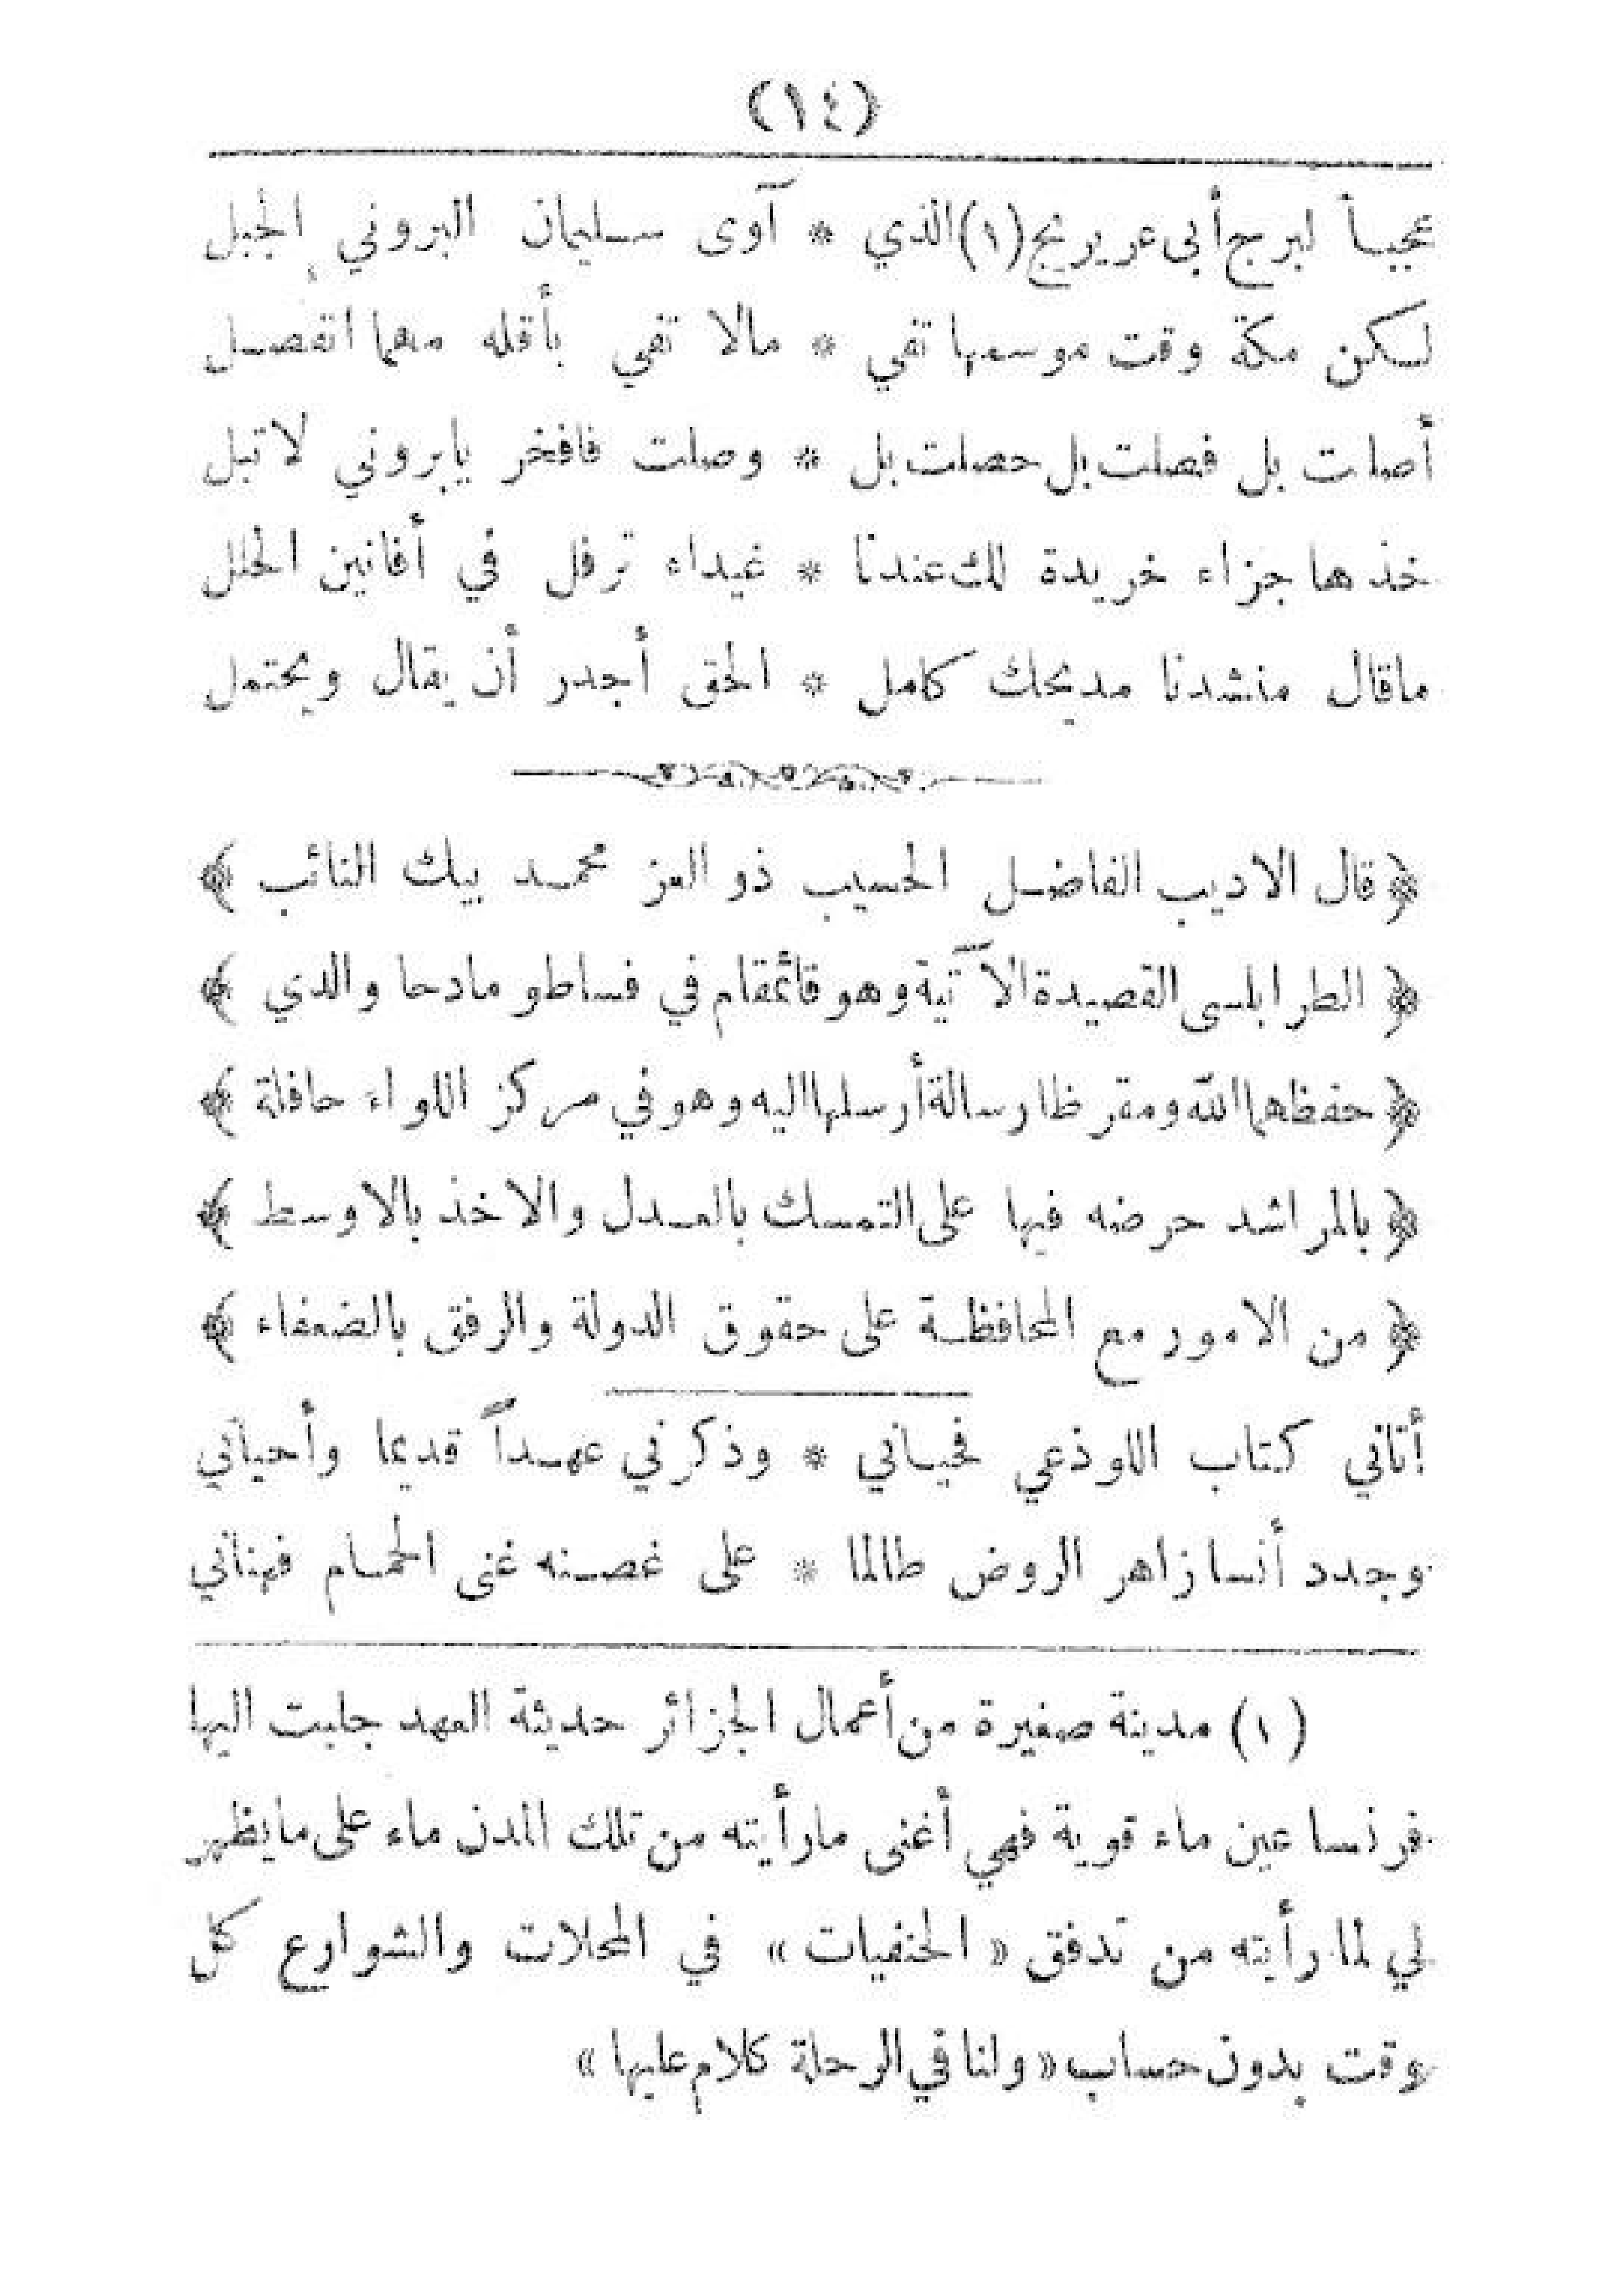 (١٤)
عجباً لبرج أبى عريريج (١) الذي * آوى سليمان البروني الجبل
لكن مكة وقت موسمها تفي * مالا تفي بأقله مهما انفصل
أصلت بل فصلت بل حصلت بل * وصلت فافخر يابروني لا تبل
خذها جزاء خريدة لك عندنا * غيداء ترفل في أفانين الحلل
ماقال منشدنا مديحك كامل * الحق أجدر أن يقال ويحتمل
﴿ قال الاديب الفاضل الحسيب ذو العز محمد بيك النائب ﴾
﴿ الطرابلسى القصيدة الآتية وهو قائمقام في فساطو مادحا والدي ﴾
﴿ حفظهما الله ومقرظا رسالة أرسلها اليه وهو في مركز اللواء حافلة ﴾
﴿ بالمراشد حرضه فيها على التمسك بالعدل والاخذ بالاوسط ﴾
﴿ من الامور مع المحافظة على حقوق الدولة والرفق بالضعفاء ﴾
أتاني كتاب اللوذعي فحياني * وذكرني عهداً قديما وأحياني
وجدد أنسا زاهر الروض طالما * على غصنه غنى الحمام فهناني
(١) مدينة صغيرة من أعمال الجزائر حديثة العهد جلبت اليها
فرنسا عين ماء قوية فهي أغنى مارأيته من تلك المدن ماء على مايظهر
لي لما رأيته من تدفق « الحنفيات » في المحلات والشوارع كل
وقت بدون حساب « ولنا في الرحلة كلام عليها »